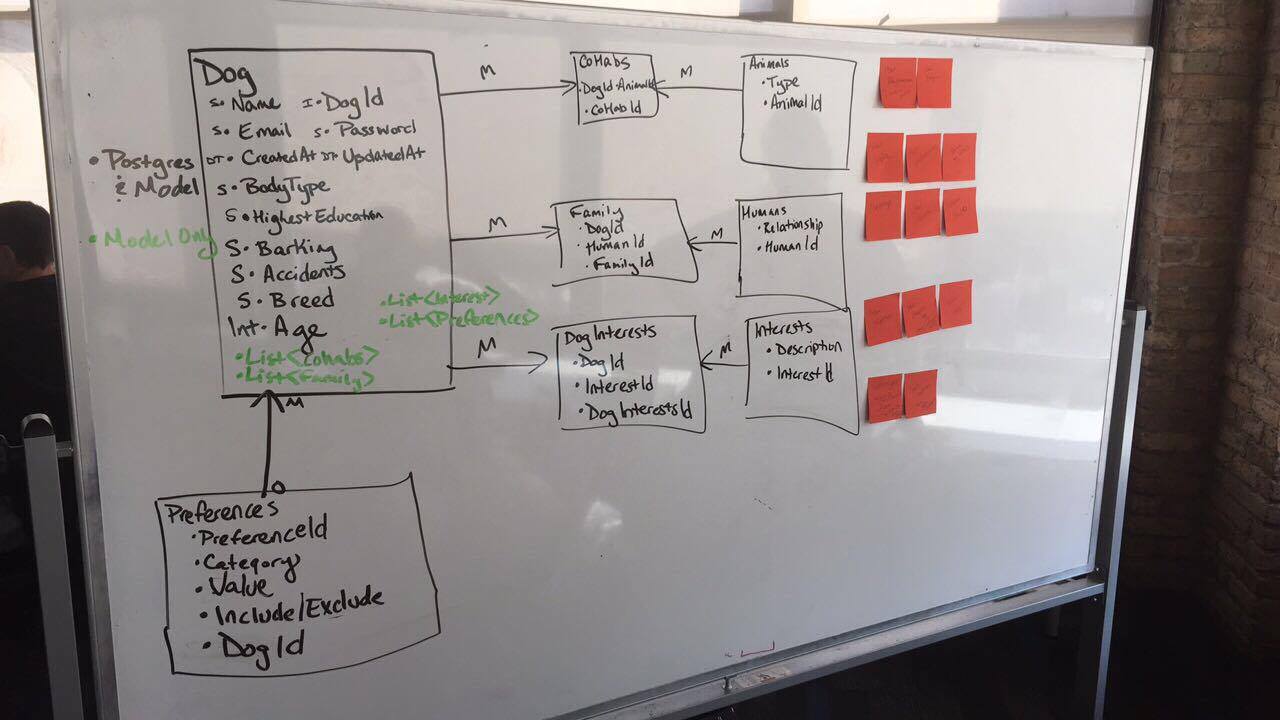 Dog
S. Name I. DogId
S. Email S. Password
DT. CreatedAt DT. UpdatedAt
S. BodyType
S. Highest Education
S. Barking
S. Accidents
S. Breed
Int. Age
• List<Cohabs>
• List<Family>
• List<Interest>
• List<Preferences>
• Postgres
& Model
• Model Only
M
CoHabs
• DogId • AnimalId
• CoHabId
M
Animals
• Type
• AnimalId
M
Family
• DogId
• HumanId
• FamilyId
M
Humans
• Relationship
• HumanId
M
DogInterests
• DogId
• InterestId
• DogInterestsId
M
Interests
• Description
• InterestId
M
O
Preferences
• PreferenceId
• Category
• Value
• Include/Exclude
• DogId